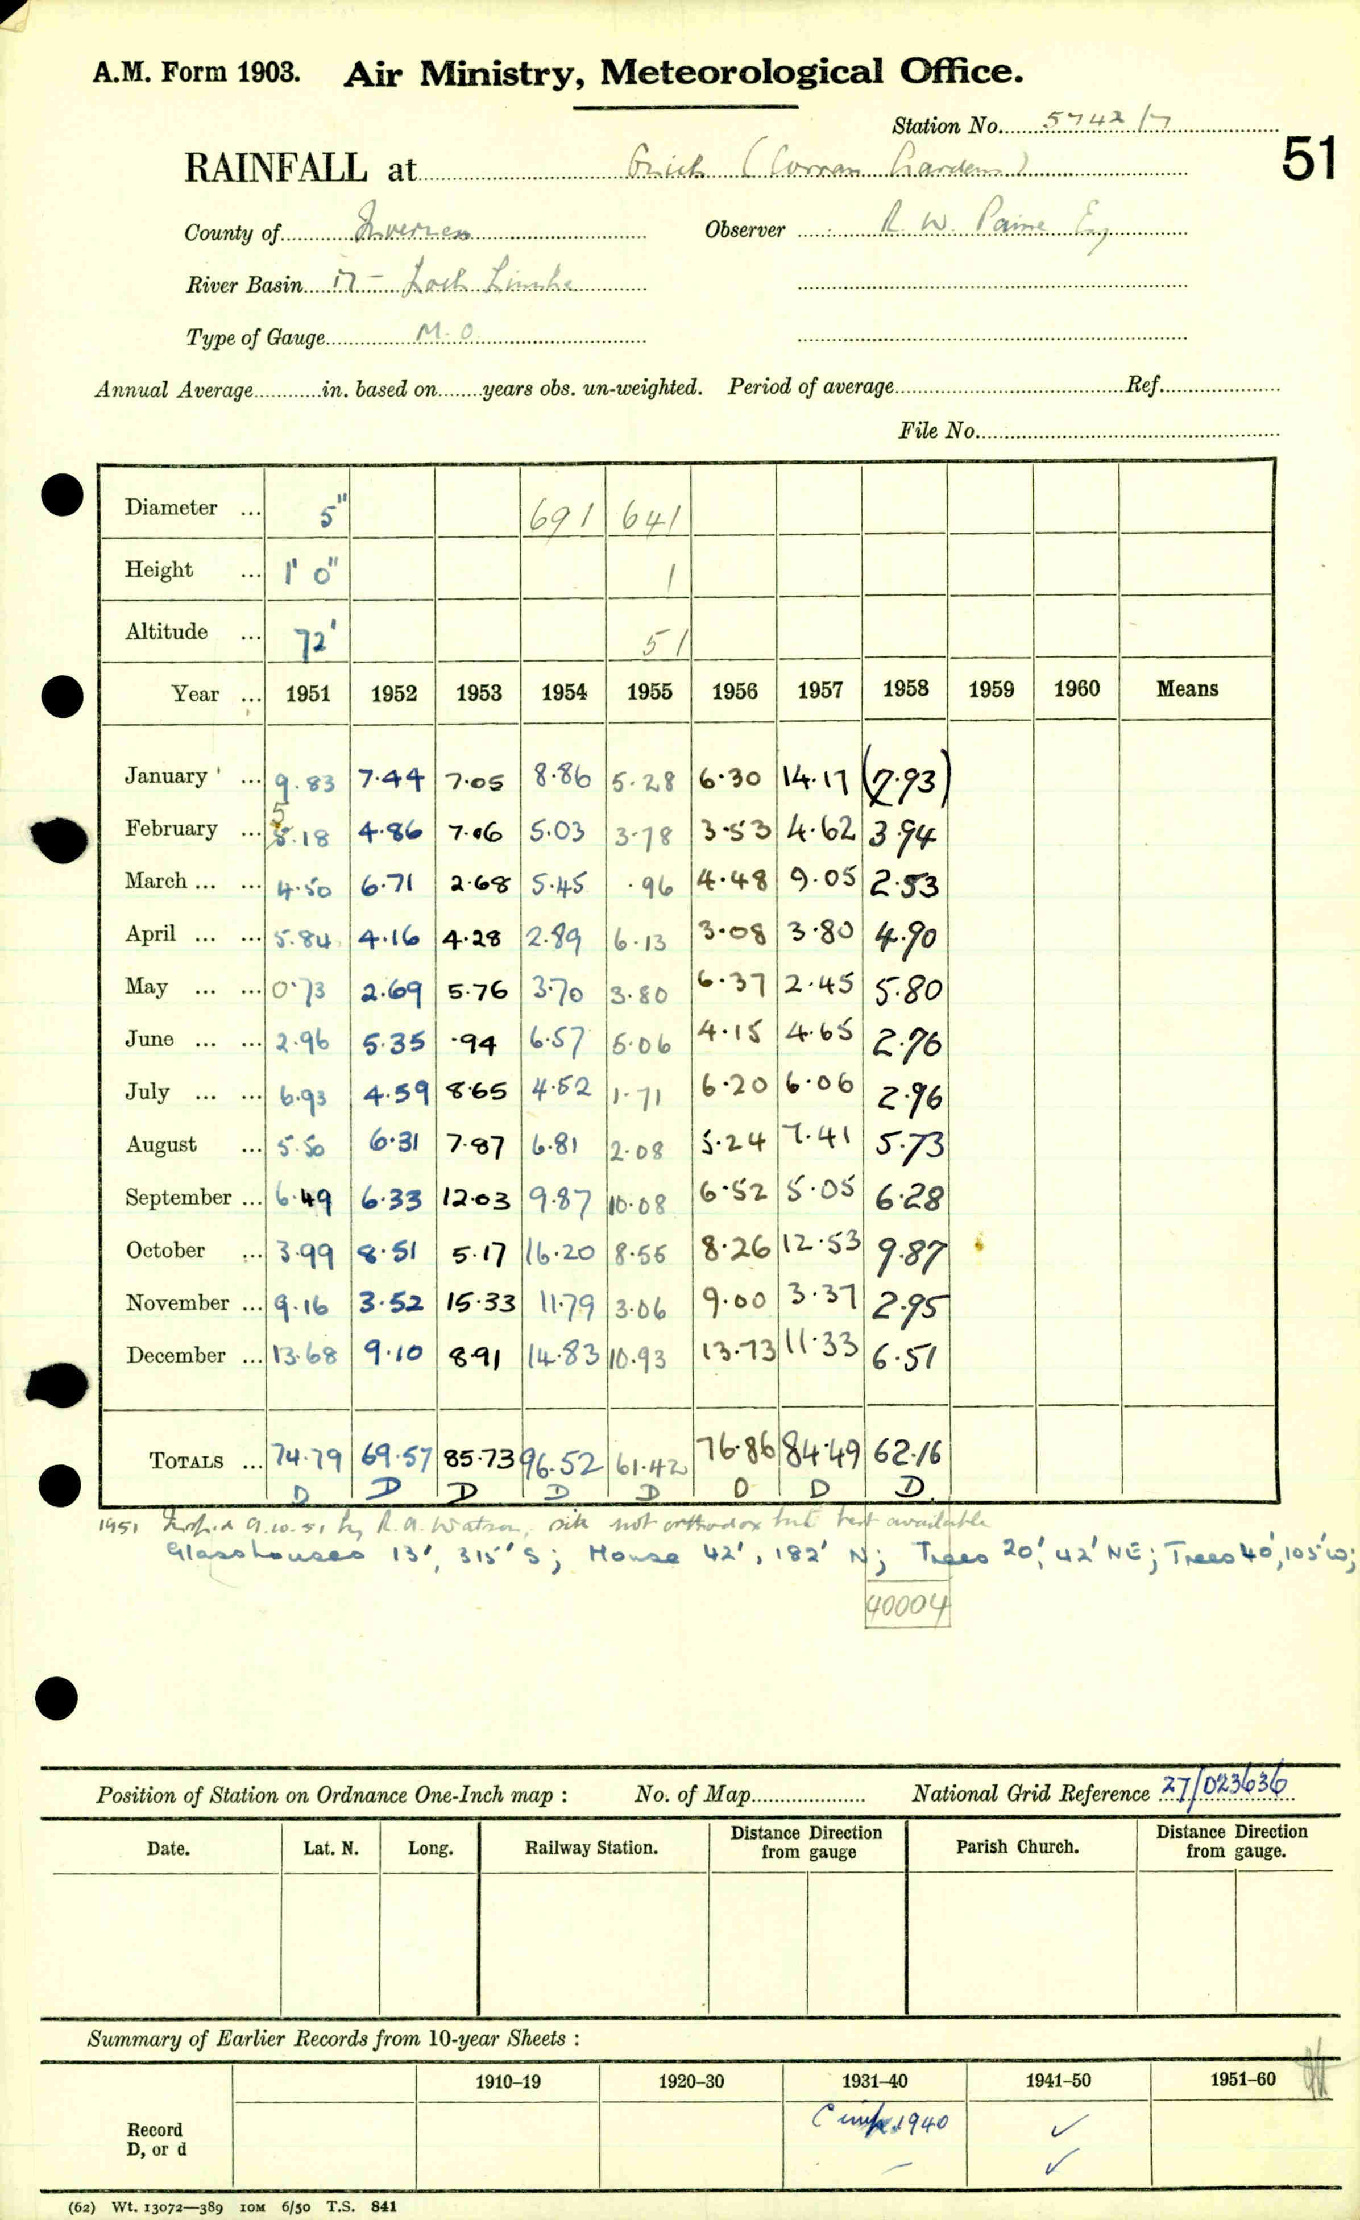 A.M. Form 1903. Air Ministry, Meteorological Office.
Station No. 5742/7
51
RAINFALL at Onich (Corran Gardens)
County of Inverness Observer R. W. Paine Esq
River Basin 17 - Loch Linnhe
Type of Gauge M.O.
Annual Average in. based on years obs. un-weighted. Period of average Ref.
File No.
Diameter ... 5" 691 641
Height ... 1' 0" 1
Altitude ... 72' 51
Year ... 1951 1952 1953 1954 1955 1956 1957 1958 1959 1960 Means
January ... 9.83 7.44 7.05 8.86 5.28 6.30 14.17 (7.93)
5
February ... 5.18 4.86 7.06 5.03 3.78 3.53 4.62 3.94
March ... ... 4.50 6.71 2.68 5.45 .96 4.48 9.05 2.53
April ... ... 5.84 4.16 4.28 2.89 6.13 3.08 3.80 4.90
May ... ... 0.73 2.69 5.76 3.70 3.80 6.37 2.45 5.80
June ... ... 2.96 5.35 .94 6.57 5.06 4.15 4.65 2.76
July ... ... 6.93 4.59 8.65 4.52 1.71 6.20 6.06 2.96
August ... 5.50 6.31 7.87 6.81 2.08 5.24 7.41 5.73
September ... 6.49 6.33 12.03 9.87 10.08 6.52 5.05 6.28
October ... 3.99 8.51 5.17 16.20 8.55 8.26 12.53 9.87
November ... 9.16 3.52 15.33 11.79 3.06 9.00 3.37 2.95
December ... 13.68 9.10 8.91 14.83 10.93 13.73 11.33 6.51
TOTALS ... 74.79 69.57 85.73 96.52 61.42 76.86 84.49 62.16
D D D D D D D D.
1951 Insp.d 9.10.51 by R.A. Watson, site not orthodox but best available
Glasshouses 13', 315' S; House 42', 182' N; Trees 20', 42' NE; Trees 40', 105' W;
40004
Position of Station on Ordnance One-Inch map : No. of Map National Grid Reference 27/023636
Date. Lat. N. Long. Railway Station. Distance Direction from gauge Parish Church. Distance Direction from gauge.
Summary of Earlier Records from 10-year Sheets :
1910–19 1920–30 1931–40 1941–50 1951–60
Record C 1940 ✓
D, or d – ✓
(62) Wt. 13072—389 10M 6/50 T.S. 841